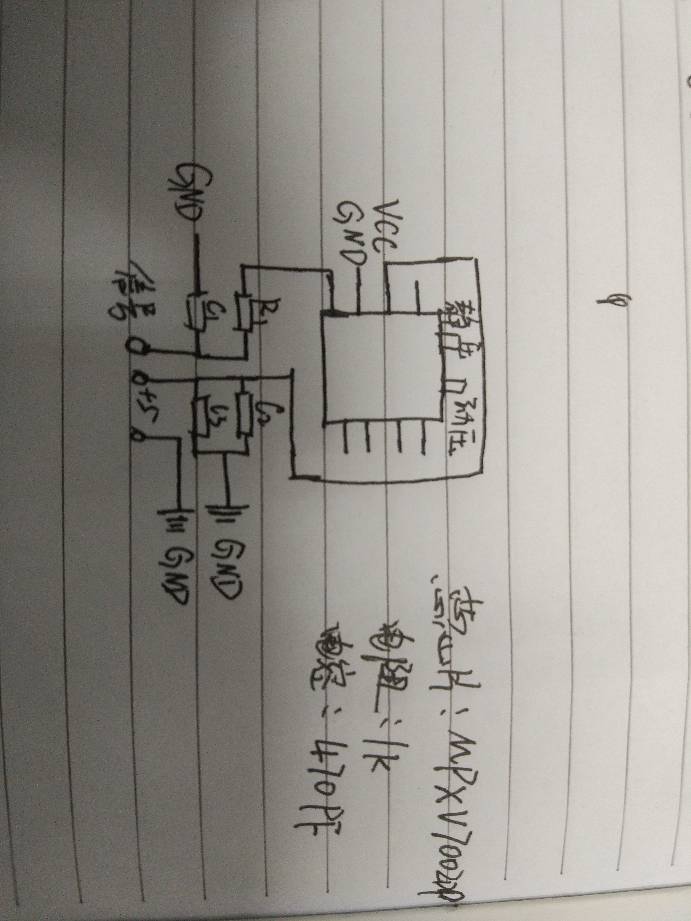 静压
动压
VCC
GND
R1
C1
GND
信号
+5
C2
C3
GND
GND
芯片:MPXV7002DP
电阻:1K
电容:470PF